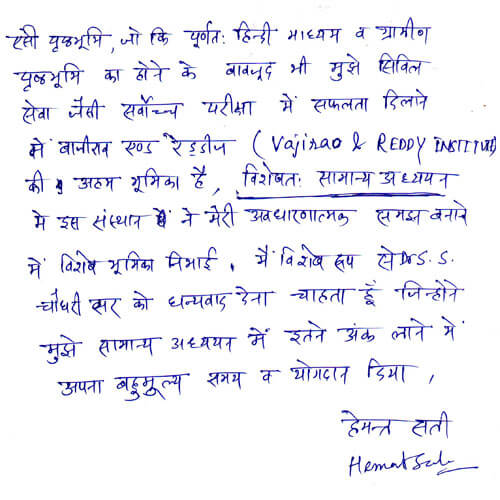 ऐसी पृष्ठभूमि, जो कि पूर्णतः हिन्दी माध्यम व ग्रामीण
पृष्ठभूमि का होने के बावजूद भी मुझे सिविल
सेवा जैसी सर्वोच्च परीक्षा में सफलता दिलाने
में बाजीराव एण्ड रेड्डीज (Vajirao & REDDY INSTITUTE)
की अहम भूमिका है, विशेषतः सामान्य अध्ययन
में इस संस्थान ने मेरी अवधारणात्मक समझ बनाने
में विशेष भूमिका निभाई, मैं विशेष रूप से Dr S. S.
चौधरी सर को धन्यवाद देना चाहता हूँ जिन्होंने
मुझे सामान्य अध्ययन में इतने अंक लाने में
अपना बहुमूल्य समय व योगदान दिया,
हेमन्त सती
Hemant Sati